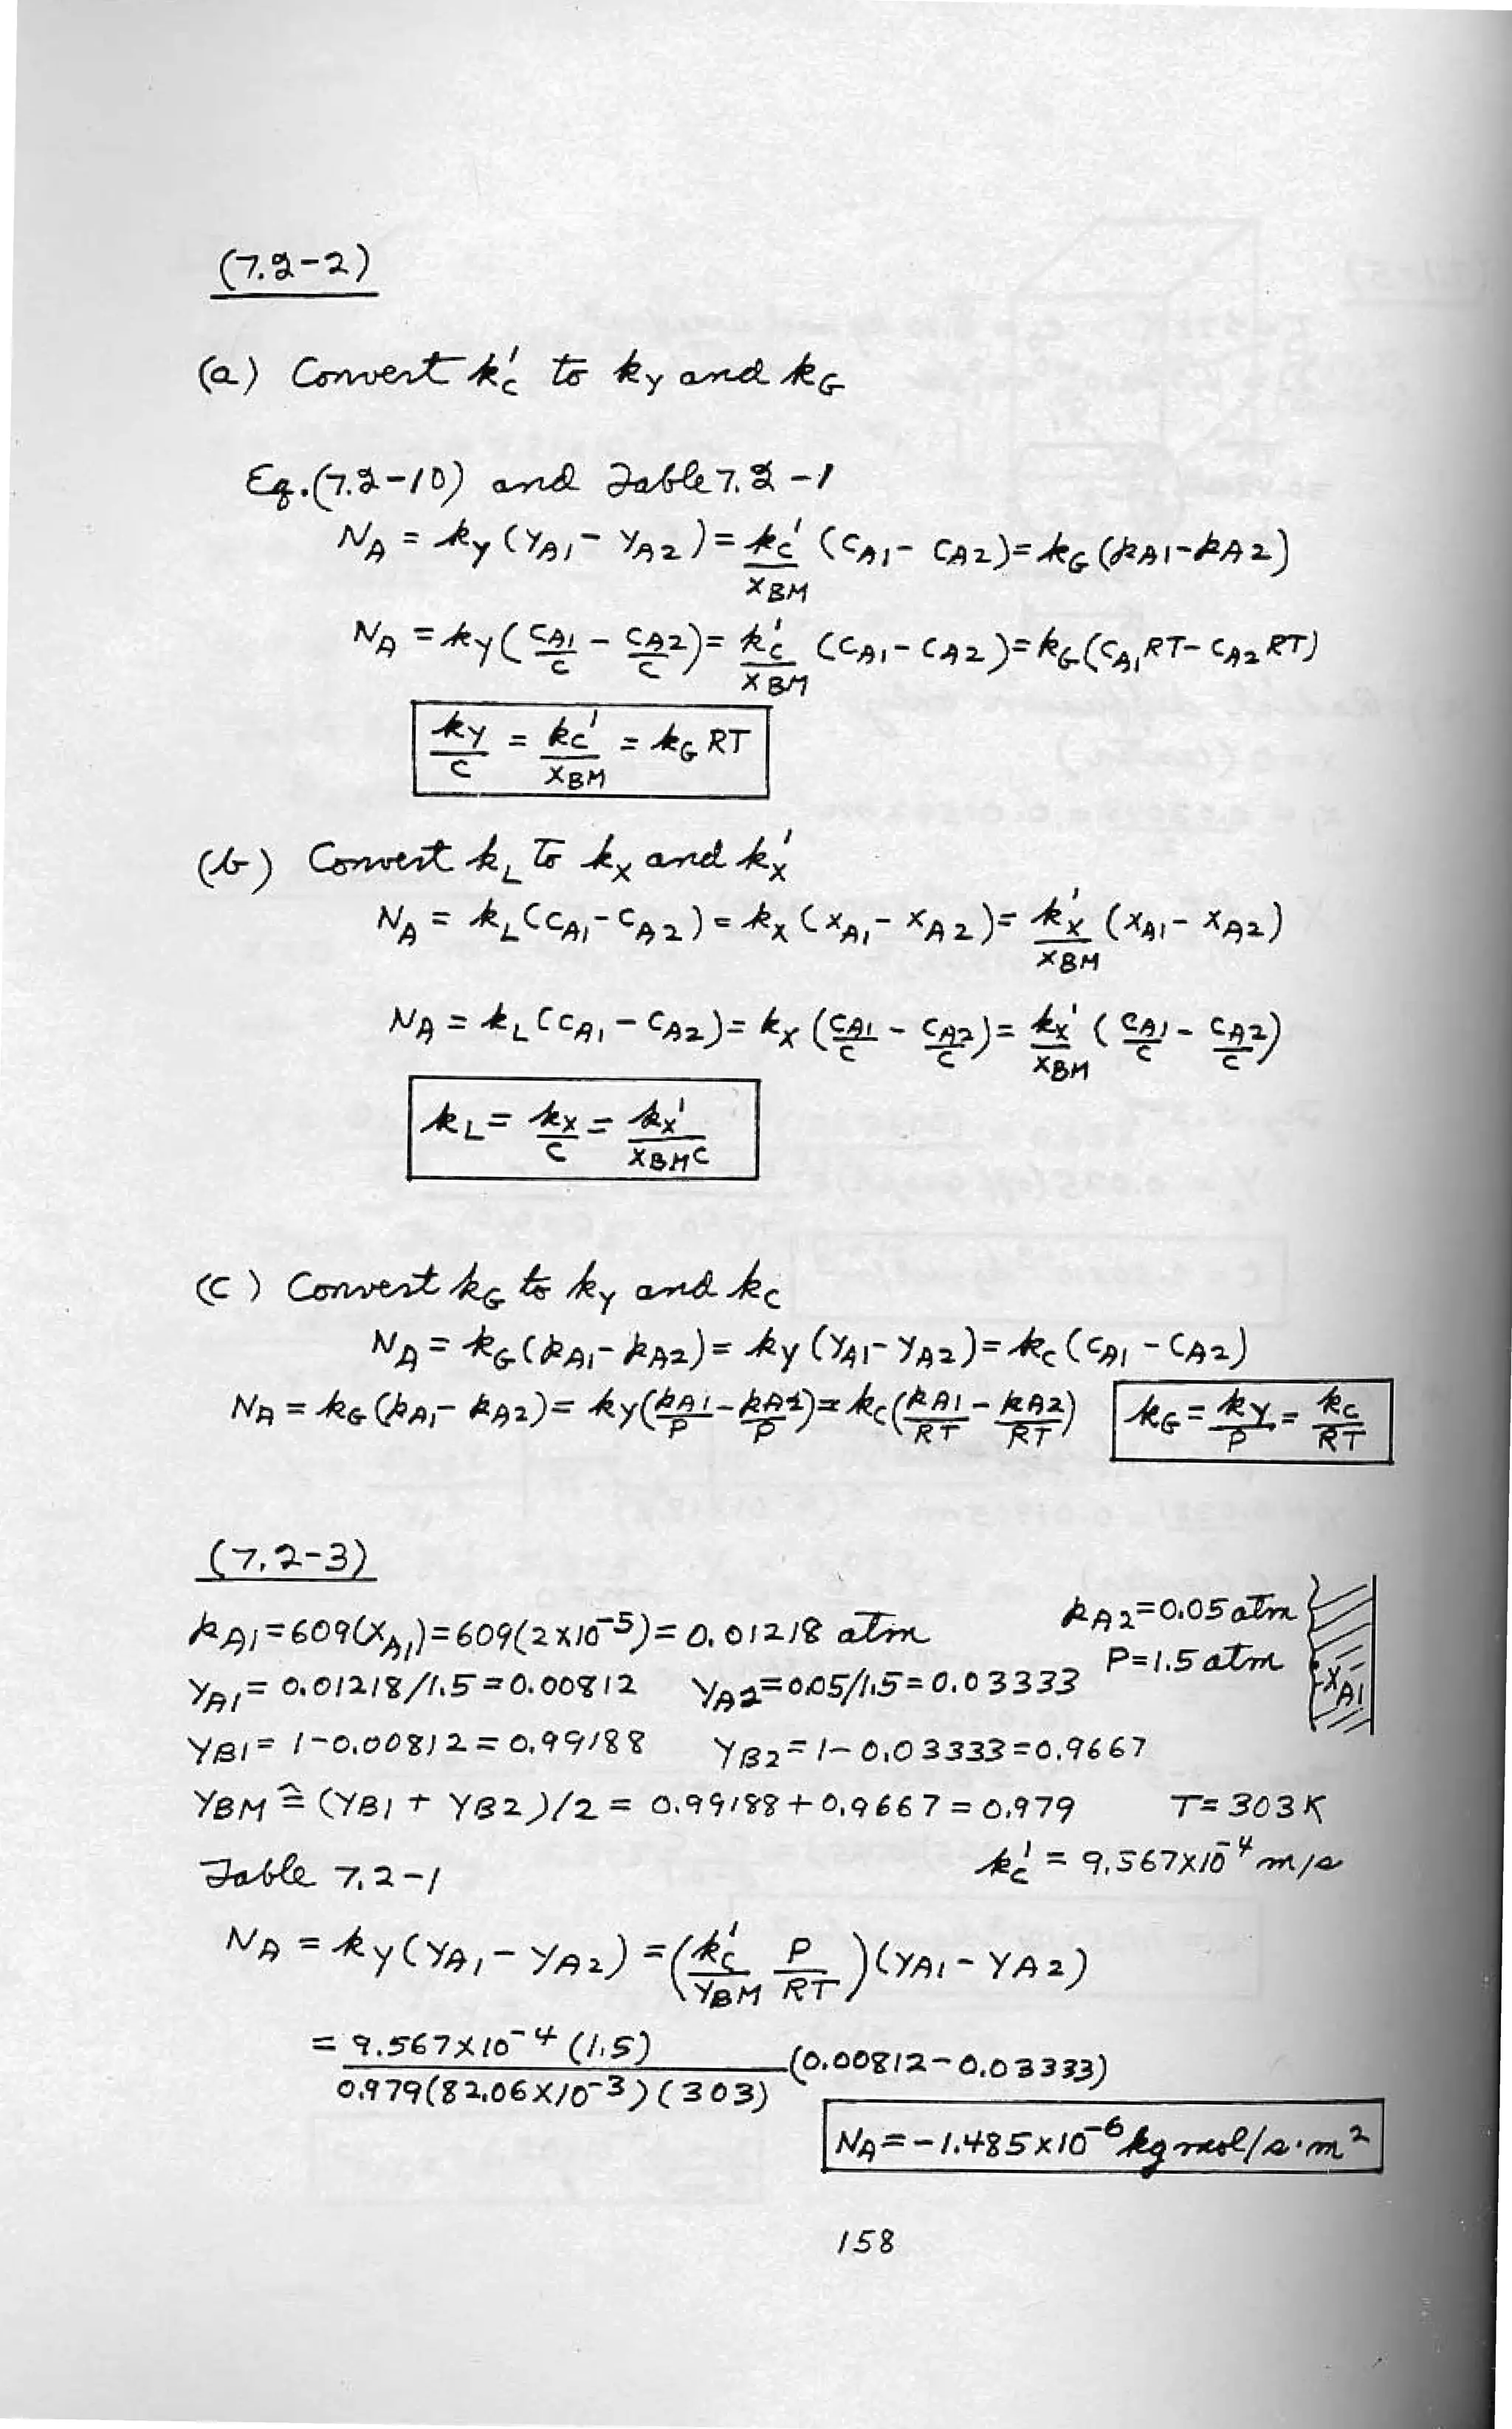 (7.2-2)
(a) Convert k'c to ky and kG
Eq.(7.2-10) and Table 7.2-1
NA = ky (yA1 - yA2) = k'c/xBM (cA1 - cA2) = kG (pA1 - pA2)
NA = ky (cA1/c - cA2/c) = k'c/xBM (cA1 - cA2) = kG (cA1RT - cA2RT)
ky/c = k'c/xBM = kG RT
(b) Convert kL to kx and k'x
NA = kL (cA1 - cA2) = kx (xA1 - xA2) = k'x/xBM (xA1 - xA2)
NA = kL (cA1 - cA2) = kx (cA1/c - cA2/c) = k'x/xBM (cA1/c - cA2/c)
kL = kx/c = k'x/xBMc
(c) Convert kG to ky and kc
NA = kG (pA1 - pA2) = ky (yA1 - yA2) = kc (cA1 - cA2)
NA = kG (pA1 - pA2) = ky (pA1/P - pA2/P) = kc (pA1/RT - pA2/RT) kG = ky/P = kc/RT
(7.2-3)
pA1 = 609(xA1) = 609(2x10^-5) = 0.01218 atm pA2 = 0.05 atm
yA1 = 0.01218/1.5 = 0.00812 yA2 = 0.05/1.5 = 0.03333 P = 1.5 atm xA1
yB1 = 1-0.00812 = 0.99188 yB2 = 1-0.03333 = 0.9667
yBM ≅ (yB1 + yB2)/2 = 0.99188 + 0.9667 = 0.979 T = 303 K
Table 7.2-1 k'c = 9.567x10^-4 m/s
NA = ky (yA1 - yA2) = (k'c/yBM P/RT)(yA1 - yA2)
= 9.567x10^-4 (1.5)/0.979(82.06x10^-3)(303) (0.00812-0.03333)
NA = -1.485x10^-6 kg mol/s·m^2
158